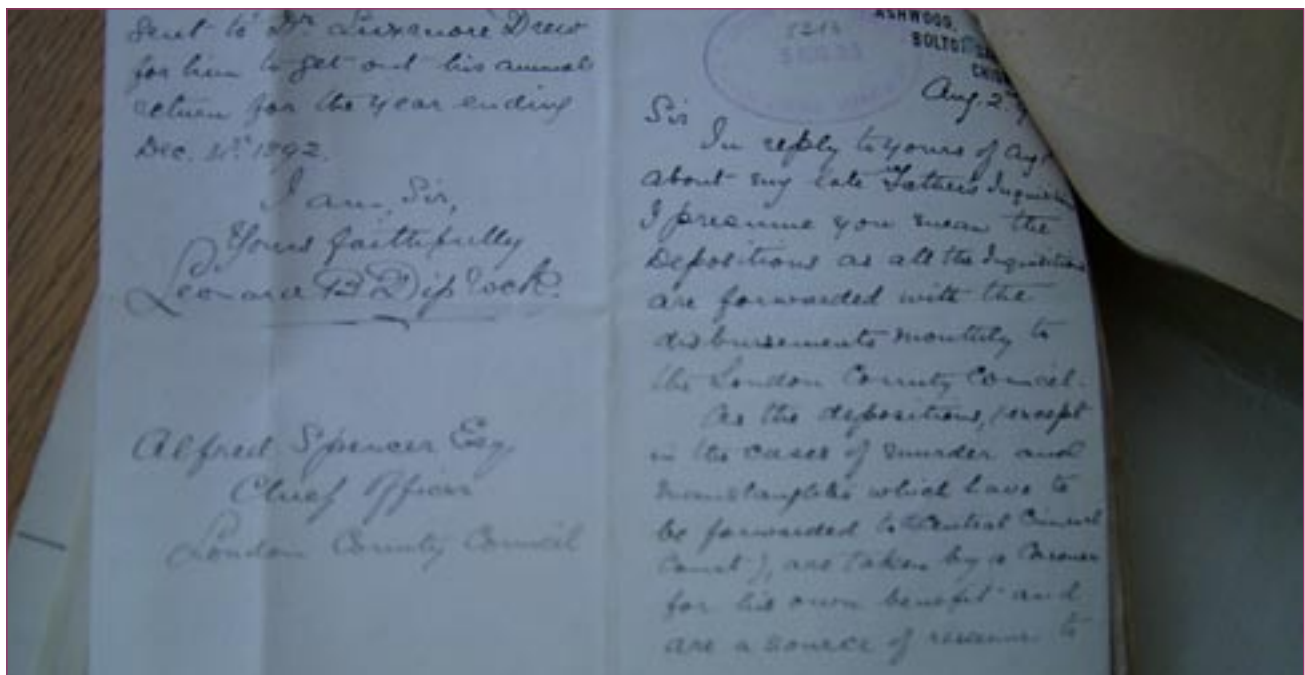 Sent to Dr. Luxmore Drew
for him to get out his annual
return for the year ending
Dec. 31st 1892.
I am, Sir,
Yours faithfully
Leonard B Diplock.
Alfred Spencer Esq.
Chief Officer
London County Council
ASHWOOD,
Aug. 2
Sir
In reply to yours of Aug
about my late Father's
I presume you mean the
Depositions as all the Inquisitions
are forwarded with the
disbursements monthly to
the London County Council.
As the depositions, (except
in the cases of murder and
manslaughter which have to
be forwarded to Central Criminal
Court), are taken by a Coroner
for his own benefit and
are a source of revenue to